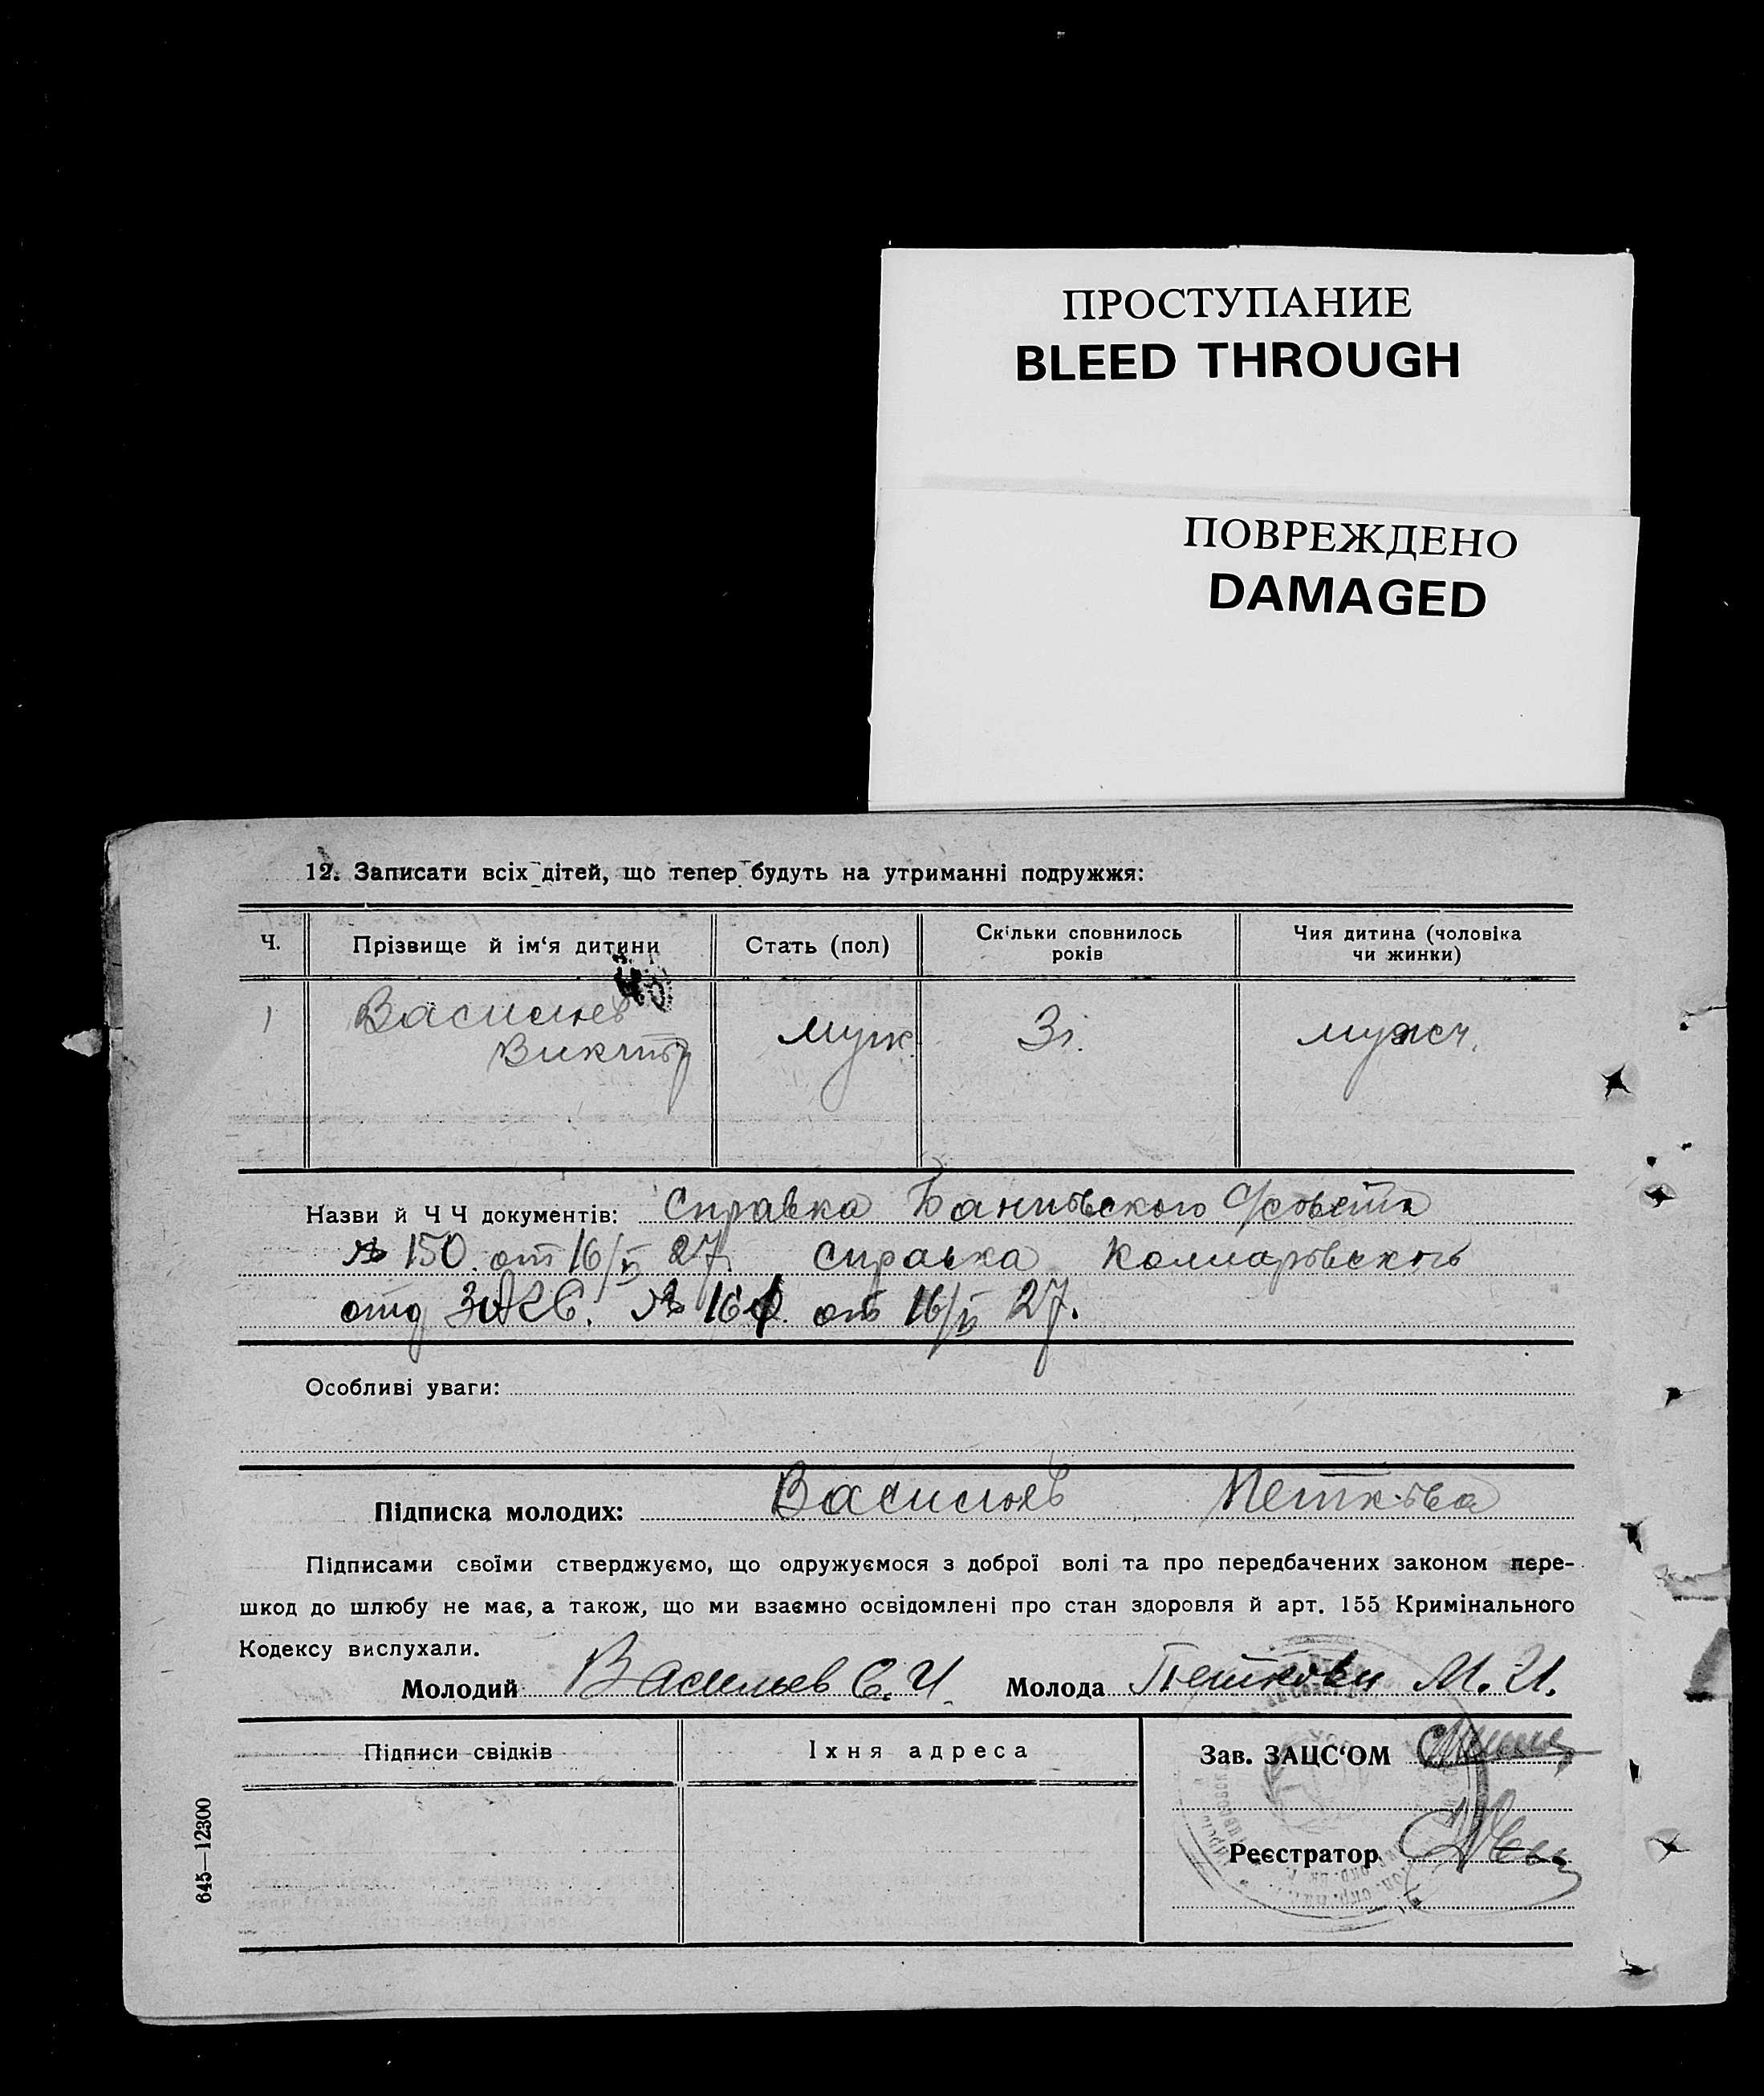 ПРОСТУПАНИЕ
BLEED THROUGH
ПОВРЕЖДЕНО
DAMAGED
12. Записати всіх дітей, що тепер будуть на утриманні подружжя:
Ч.
Прізвище й ім‘я дитини
Стать (пол)
Скільки сповнилось
років
Чия дитина (чоловіка
чи жинки)
1
Васильев
Виктор
муж.
3 г.
мужч.
Назви й Ч Ч документів: Справка С/совета
№ 150 от 16/ 27 справка Комаровского
отд ЗАГС. № от 16/ 27.
Особливі уваги:
Підписка молодих: Васильев Петкова
Підписами своїми стверджуємо, що одружуємося з доброї волі та про передбачених законом пере-
шкод до шлюбу не має, а також, що ми взаємно освідомлені про стан здоровля й арт. 155 Кримінального
Кодексу вислухали.
Молодий Васильев С. И. Молода Петкова М. И.
Підписи свідків
Їхня адреса
Зав. ЗАЦС‘ОМ
Реєстратор
645—12300